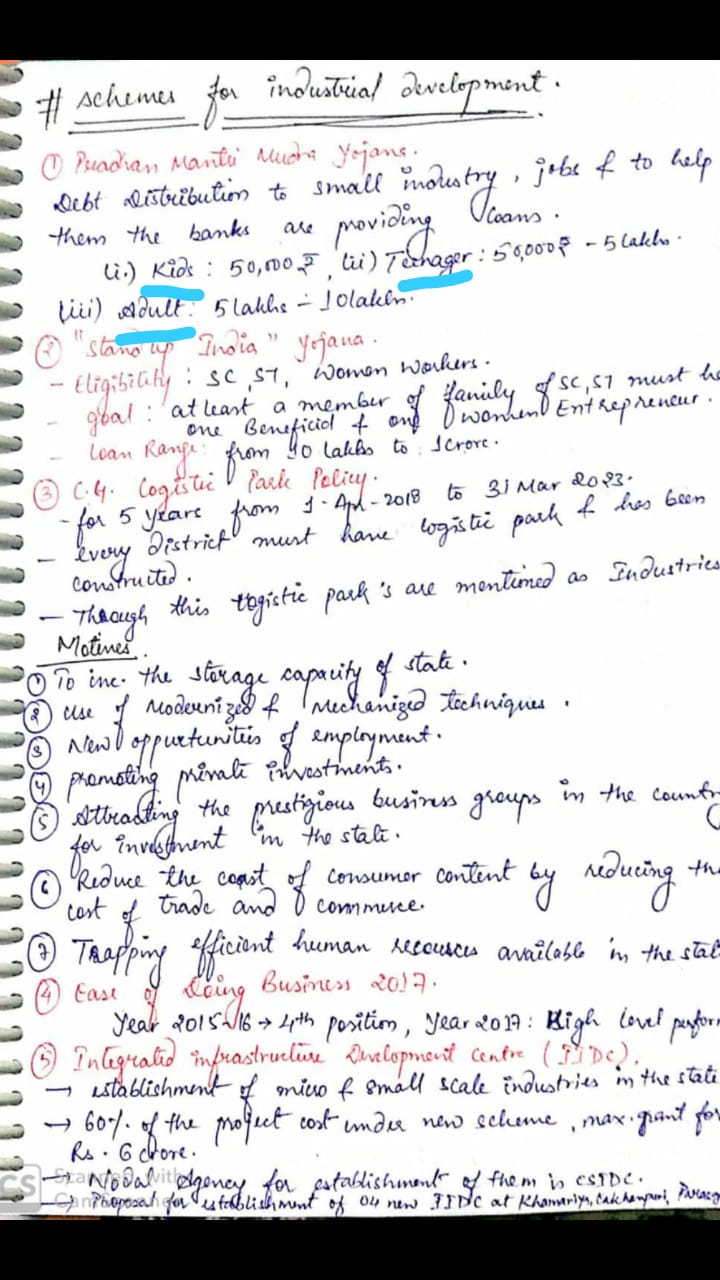 # Schemes for industrial development.
① Pradhan Mantri Mudra Yojana.
Debt Distribution to small industry, jobs & to help
them the banks are providing loans.
(i.) Kids : 50,000₹, (ii) Teenager : 50,000₹ - 5 lakhs.
(iii) Adult : 5 lakhs - 10 lakhs.
② "Stand up India" Yojana.
- Eligibility : SC, ST, Women Workers.
- goal : at least a member of family of SC, ST must
one Beneficid & one women Entrepreneur.
- Loan Range: from 10 lakhs to 1 crore.
③ C.G. Logistic Park Policy.
- for 5 years from 1-Apr-2018 to 31 Mar 2023.
- every district must have logistic park & has been
constructed.
- Through this logistic park's are mentioned as Industries
Motives.
① To inc. the storage capacity of state.
② Use of Modernized & Mechanized techniques.
③ New oppurtunities of employment.
④ promoting private investments.
⑤ Attracting the prestigious business groups in the countr
for investment in the state.
⑥ Reduce the cost of consumer content by reducing th
cost of trade and commerce.
⑦ Trapping efficient human recources available in the stat
④ Ease of Doing Business 2017.
Year 2015-16 → 4th position, Year 2017 : High level perfor
⑤ Integrated infrastructure Development Centre (IIDC).
→ establishment of micro & small scale industries in the state
→ 60% of the project cost under new scheme, max. grant for
Rs. 6 crore.
→ Nodal Agency for establishment of them is CSIDC.
→ Proposal for establishment of 04 new IIDC at Khamariya, Lakhanpuri,
CS Scanned with
CamScanner